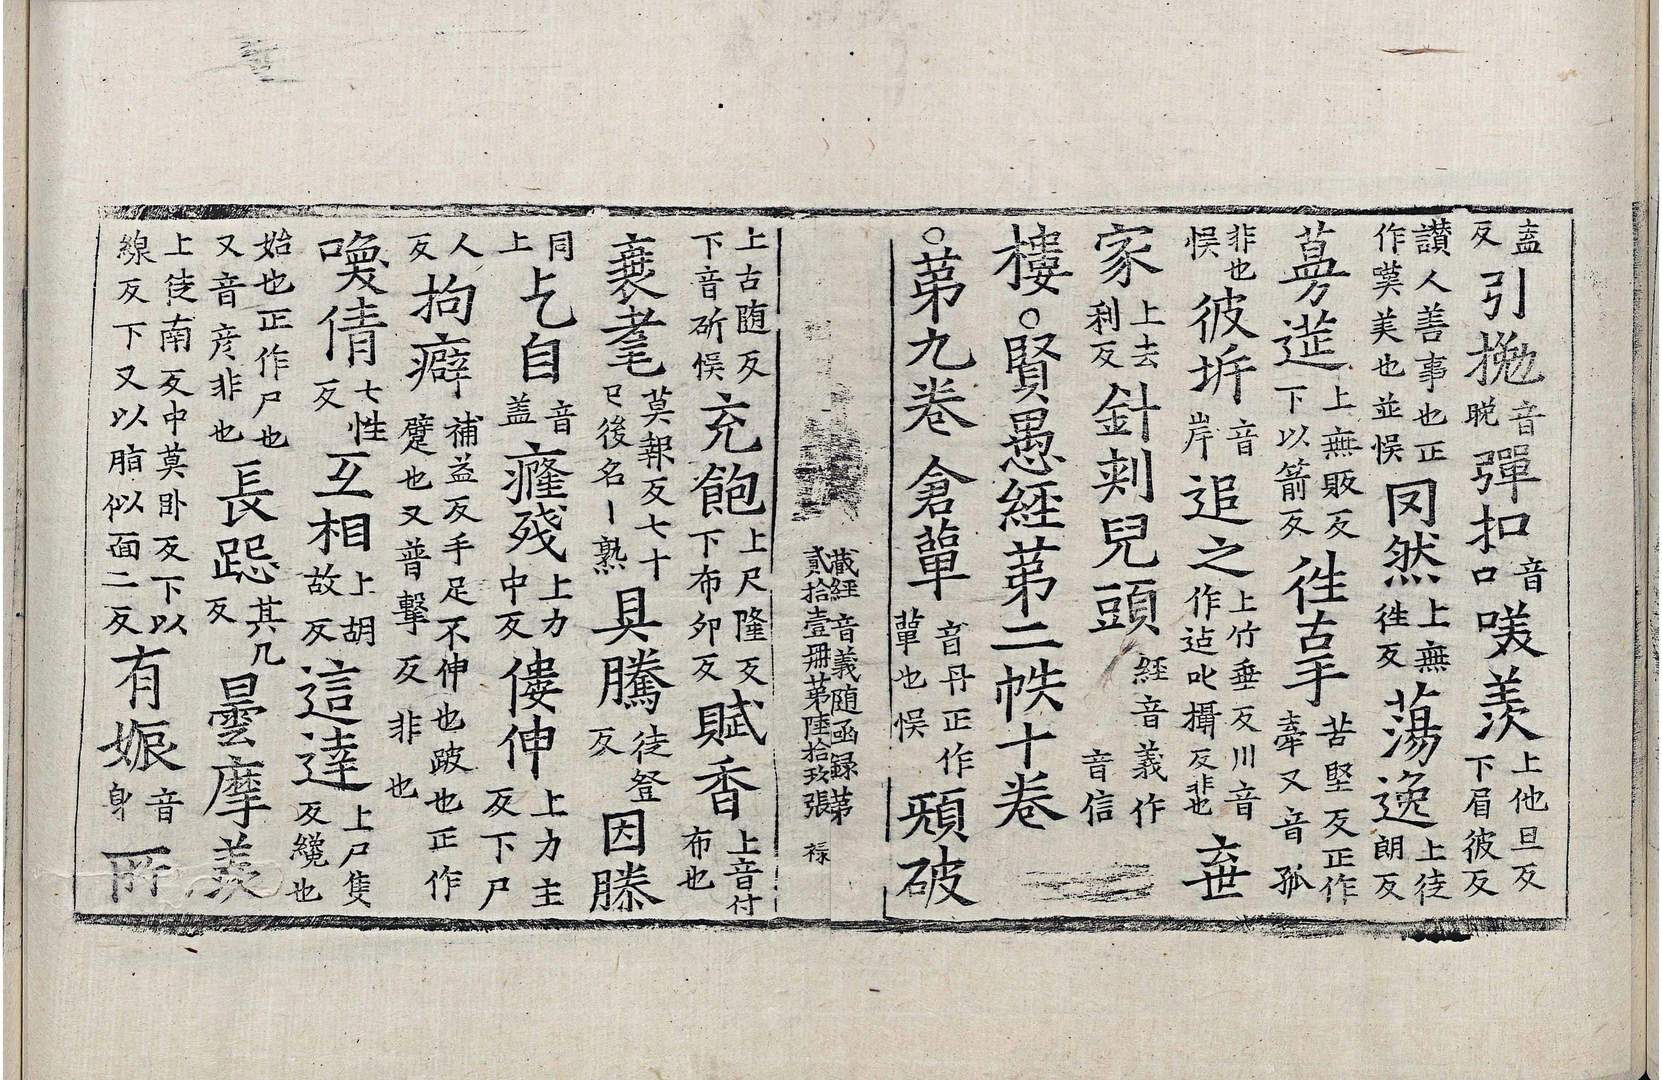 盍反引㧞音䀳彈扣音口嘆羨上他旦反下眉彼反
讃人善事也正作𠻮美也並悮罔然上無往反蕩逸上徒朗反
蒡蓰上無販反下以箭反徃𡴞苦堅反正作牽又音孤
非也悮彼坼音岸追之上竹垂反川音作迠叱攝反非也棄
家上去利反針刾兒頭經音義作音信
樓○賢愚經第二帙十卷
○第九卷倉簞音丹正作簞也悮頞破
藏經音義随函録第貳拾壹冊第陸拾玖張 祿
上古随反下音斫悮充飽上尺隆反下布卯反賦香上音付布也
蓑耄莫報反七十已後名丨熟具騰徒登反因縢
同上乞自音盖癃殘上力中反僂伸上力主反下尸
人反拘癖補益反手足不伸也跛也正作躄也又普擊反非也
喚倩七性反互相上胡故反這達上尸隻反纔也
始也正作尸也又音彦非也長跽其几反曇摩羨
上徒南反中莫卧反下以線反下又以脂似面二反有娠音身所